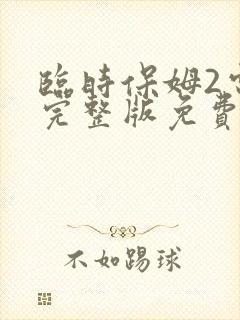 臨時保姆2
完整版免費
不如踢球